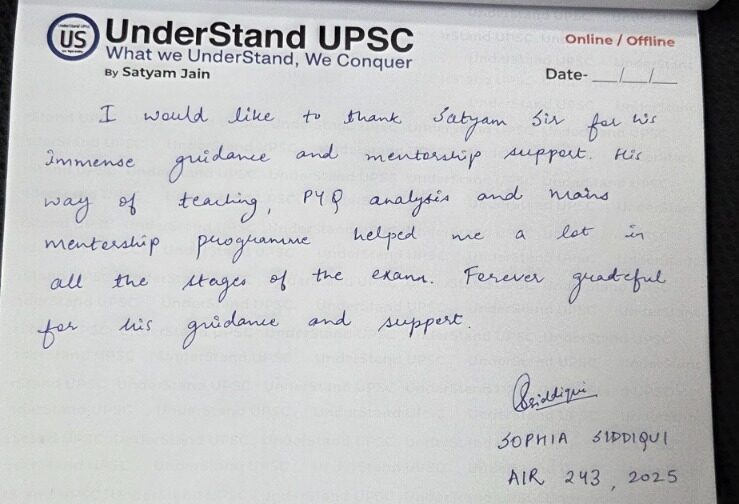 UnderStand UPSC
US
What we UnderStand, We Conquer
By Satyam Jain
Online / Offline
Date- __/__/__
I would like to thank Satyam Sir for his
immense guidance and mentorship support. His
way of teaching, PYQ analysis and mains
mentership programme helped me a lot in
all the stages of the exam. Ferever grateful
for his guidance and support.
Ssiddiqui
SOPHIA SIDDIQUI
AIR 243, 2025